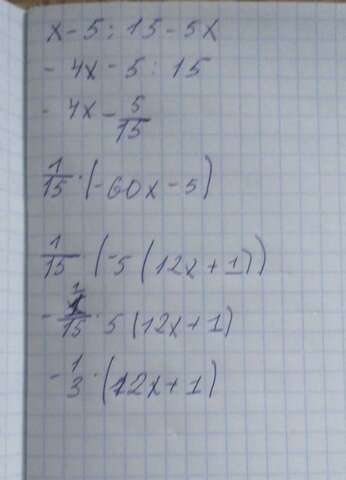 x - 5 : 15 - 5x
- 4x - 5 : 15
- 4x - 5/15
1/15 · (-60x - 5)
1/15 · (-5 (12x + 1))
- 1/15 · 5 (12x + 1)
- 1/3 · (12x + 1)